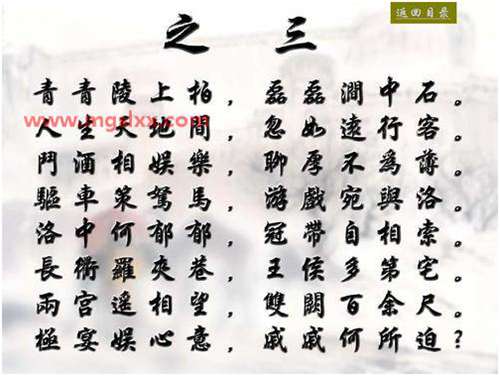 返回目录
之三
青青陵上柏，磊磊澗中石。
人生天地間，忽如遠行客。
鬥酒相娛樂，聊厚不為薄。
驅車策駑馬，游戲宛與洛。
洛中何郁郁，冠帶自相索。
長衢羅夾巷，王侯多第宅。
兩宮遙相望，雙闕百余尺。
極宴娛心意，戚戚何所迫？